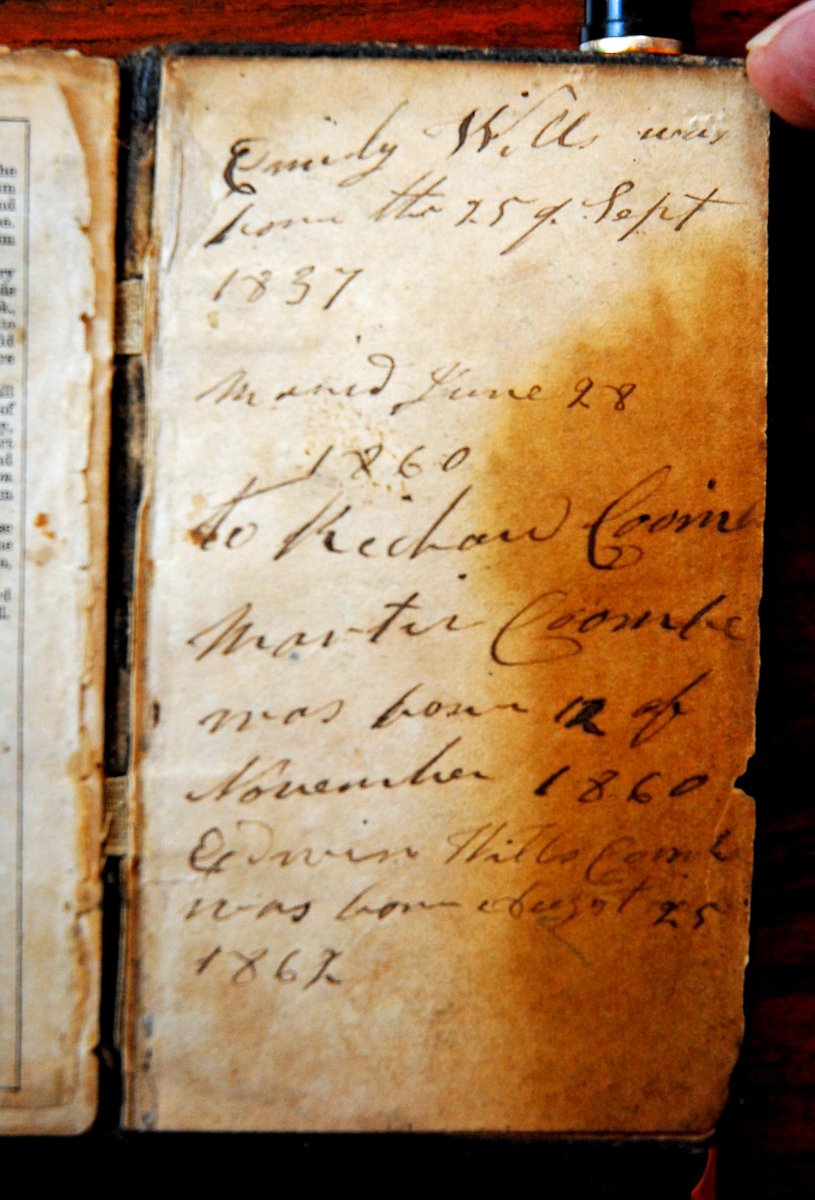 Emily Wills was
born the 25 of Sept
1837
Marrid June 28
1860
to Richard Coombe
Martin Coombe
was born 12 of
November 1860
Edwin Wills Coombe
was born August 25
1862